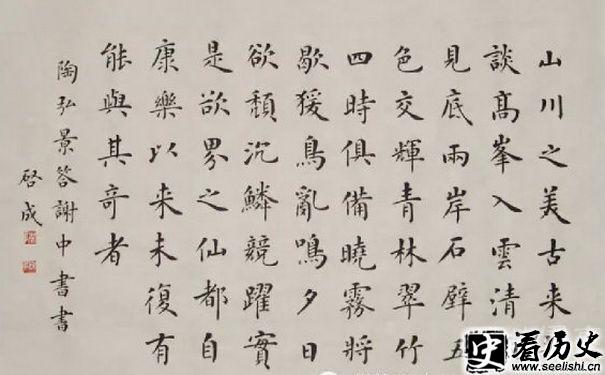 山川之美古来
談高峯入雲清
見底兩岸石壁五
色交輝青林翠竹
四時俱備曉霧將
歇猨鳥亂鳴夕日
欲頹沉鱗競躍實
是欲界之仙都自
康樂以来未復有
能與其奇者
陶弘景答謝中書書
啓成
史看历史
www.seelishi.cn